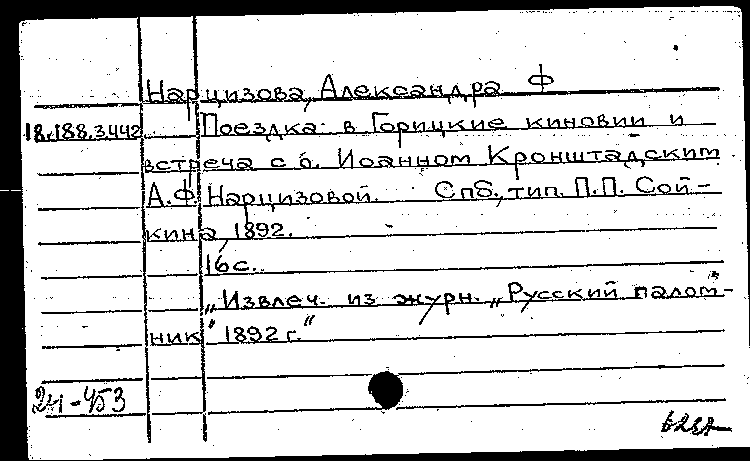 Нарцизова, Александра Ф
18.188.3.442 Поездка в Горицкие киновии и
встреча с о. Иоанном Кронштадским
А.Ф. Нарцизовой. Спб., тип. П.П. Сой-
кина, 1892.
16 с.
„Извлеч. из журн. „Русский палом-
ник" 1892 г."
24-453